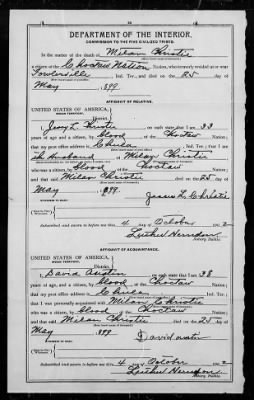 DEPARTMENT OF THE INTERIOR.
COMMISSION TO THE FIVE CIVILIZED TRIBES.
In the matter of the death of Milan Christie
a citizen of the Choctaw Nation, who formerly resided at or near
Fowlerville Ind. Ter., and died on the 25 day of
May, 1899.
AFFIDAVIT OF RELATIVE.
UNITED STATES OF AMERICA,
INDIAN TERRITORY,
District.
I, Christie on oath state that I am 33
years of age and a citizen, by blood of the Choctaw Nation;
that my post office address is Ind. Ter.; that I am
Husband of Milan Christie
who was a citizen, by blood of the Choctaw Nation;
and that said Milan Christie died on the 25 day of
May, 1899.
Christie
Subscribed and sworn to before me this 4 day of October 190 2
Luther Herndon
Notary Public.
AFFIDAVIT OF ACQUAINTANCE.
UNITED STATES OF AMERICA,
INDIAN TERRITORY,
District.
I, David on oath state that I am 38
years of age, and a citizen by blood of the Choctaw Nation;
that my post office address is Ind. Ter.;
that I was personally acquainted with Milan Christie
who was a citizen, by blood of the Choctaw Nation;
and that said Milan Christie died on the 25 day of
May, 1899
David
Subscribed and sworn to before me this 4 day of October 190 2
Luther Herndon
Notary Public.